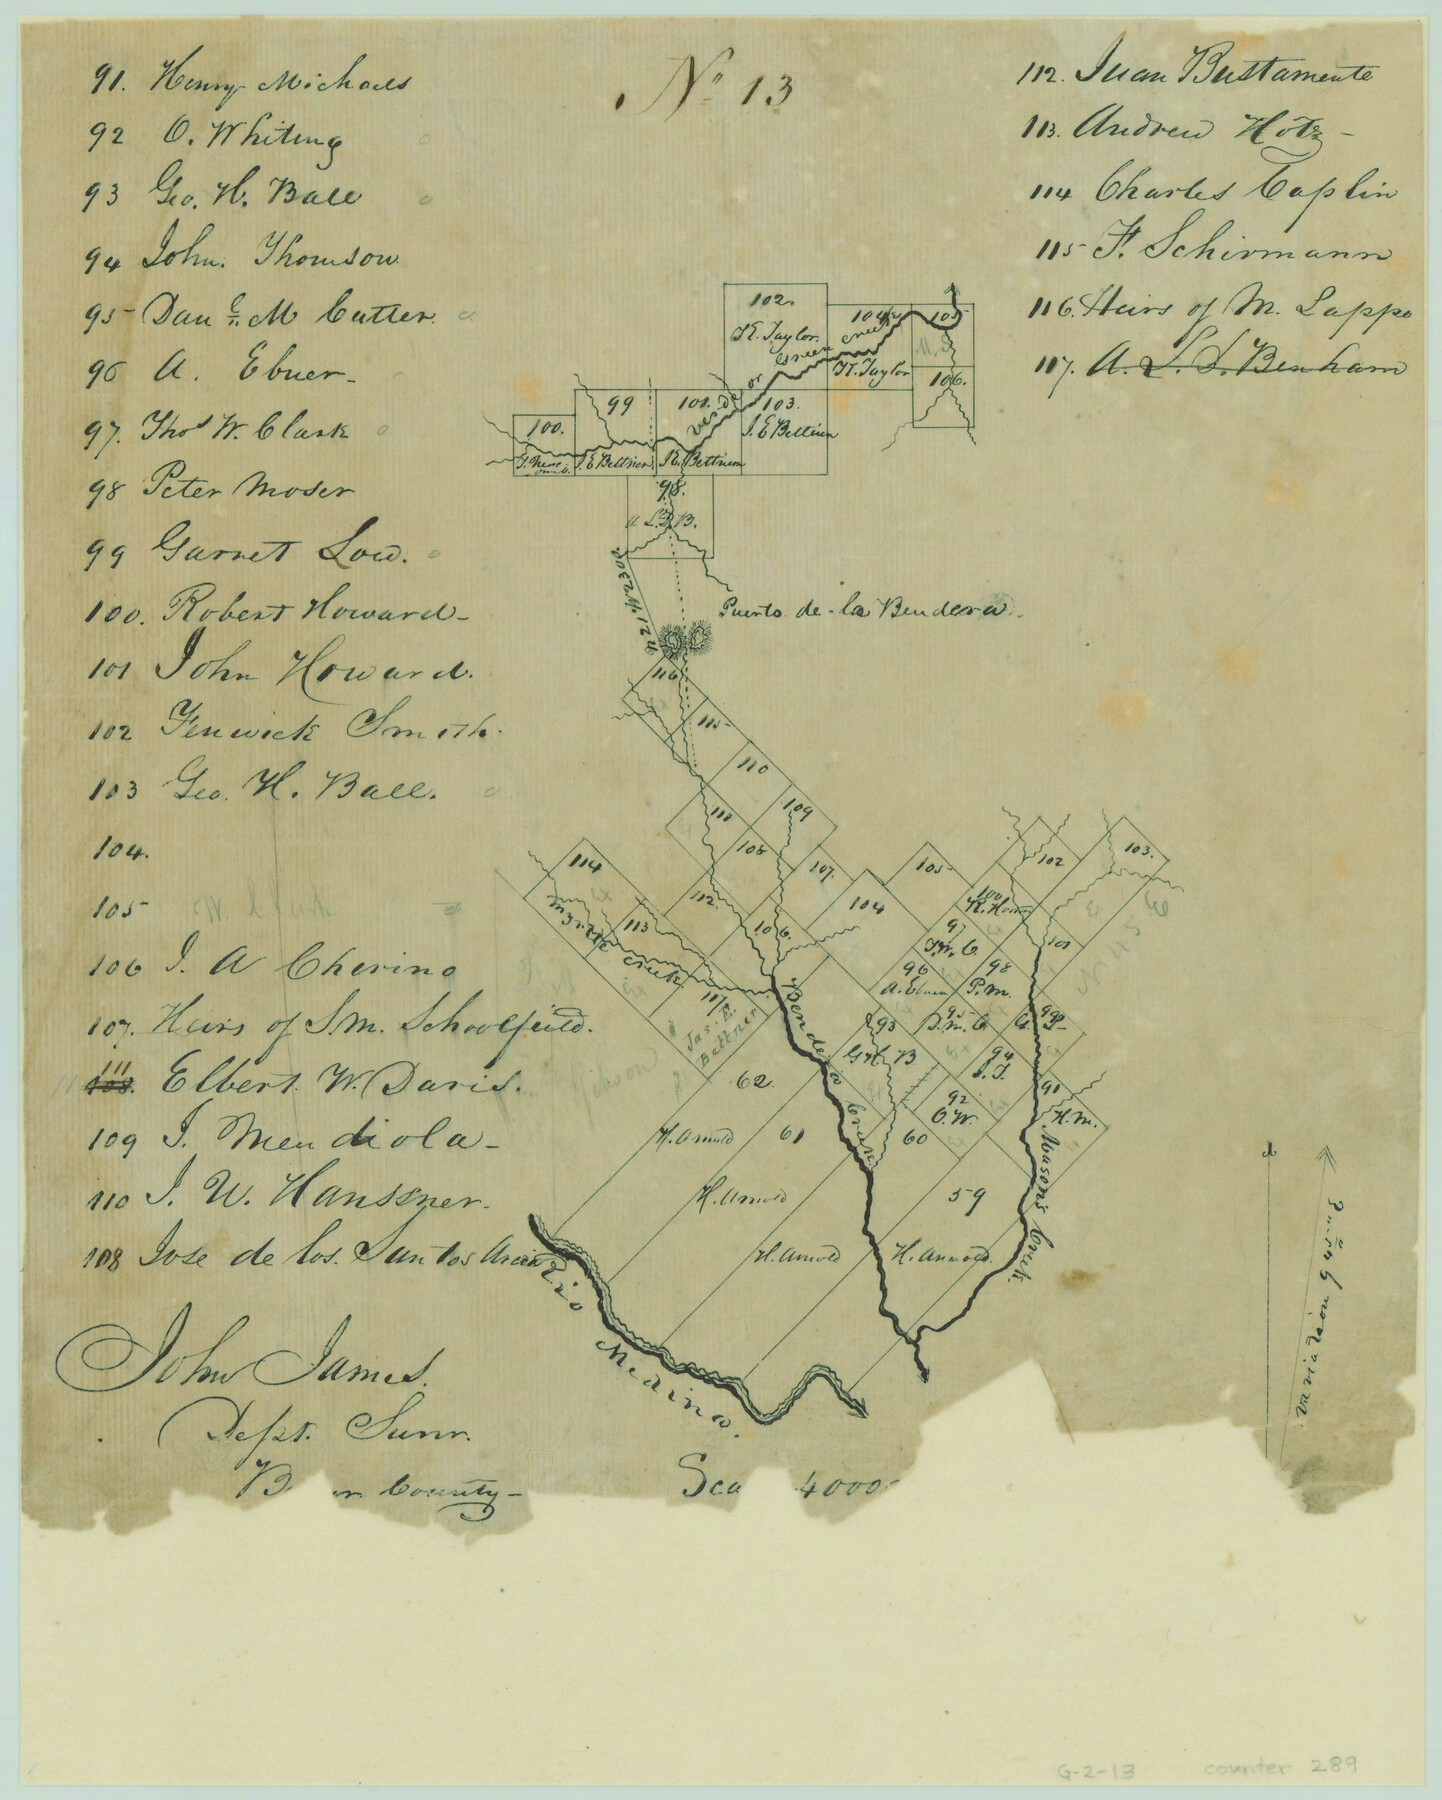 No 13
91. Henry Michaels
92 O. Whiting
93 Geo. H. Ball
94 John. Thomson
95 Danl. M Cutter.
96 A. Ebner
97. Thos W. Clark
98 Peter Moser
99 Garret Low.
100. Robert Howard
101 John Howard.
102 Fenwick Smith.
103 Geo. H. Ball.
104.
105 W. Clark
106 J. A Cherino
107. Heirs of S. M. Schoolfield.
111 108. Elbert. W. Davis.
109 J. Mendiola
110 J. W. Hanssner.
108 Jose de los. Santos
John James.
Dept. Surv.
County
112. Juan Bustamente
113. Andrew Hotz
114 Charles Caplin
115 F. Schirmann
116. Heirs of M. Lappe
117. A. L. S. Benham
102.
K. Taylor
104
105
K. Taylor
106.
Verde or Green Creek
100.
99
101.
103.
J. E Bettner
J. E Bettner
K. Bettner
98.
A L. S. B.
Puerto de la Bendera
116
115
110
109
111
108
107.
114
113
112
106.
104
105
102
103.
100
R. How
97
T. W. C.
101
96
A. Ebner
98
P. M.
N 45 E
Myrtle Creek
117
Jas. E. Bettner
93
G H B
95
D. M. C
99
G. L
94
J. T.
92
O. W.
91
H. M.
Bendera Creek
Masons Creek.
62
H. Arnold
61
H. Arnold
60
H. Arnold
59
H. Arnold
Rio Medina.
variation 9° 54" E
Sca 4000
G-2-13
counter 289